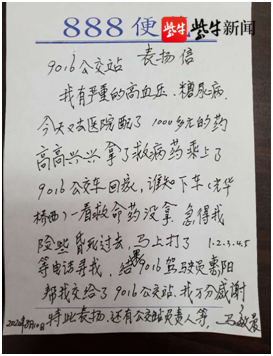 888便
紫牛 紫牛新闻
9016公交站 表扬信
我有严重的高血压、糖尿病,
今天又去医院配了1000多元的药
高高兴兴拿了救病药乘上了
9016公交车回家,谁知下车(光华
桥西)一看救命药没拿,急得我
险些昏死过去,马上打了1.2.3.4.5
等电话寻找,结果9016驾驶员惠阳
帮我交给了9016公交站.我万分感谢
特此表扬.还有公交站负责人等,